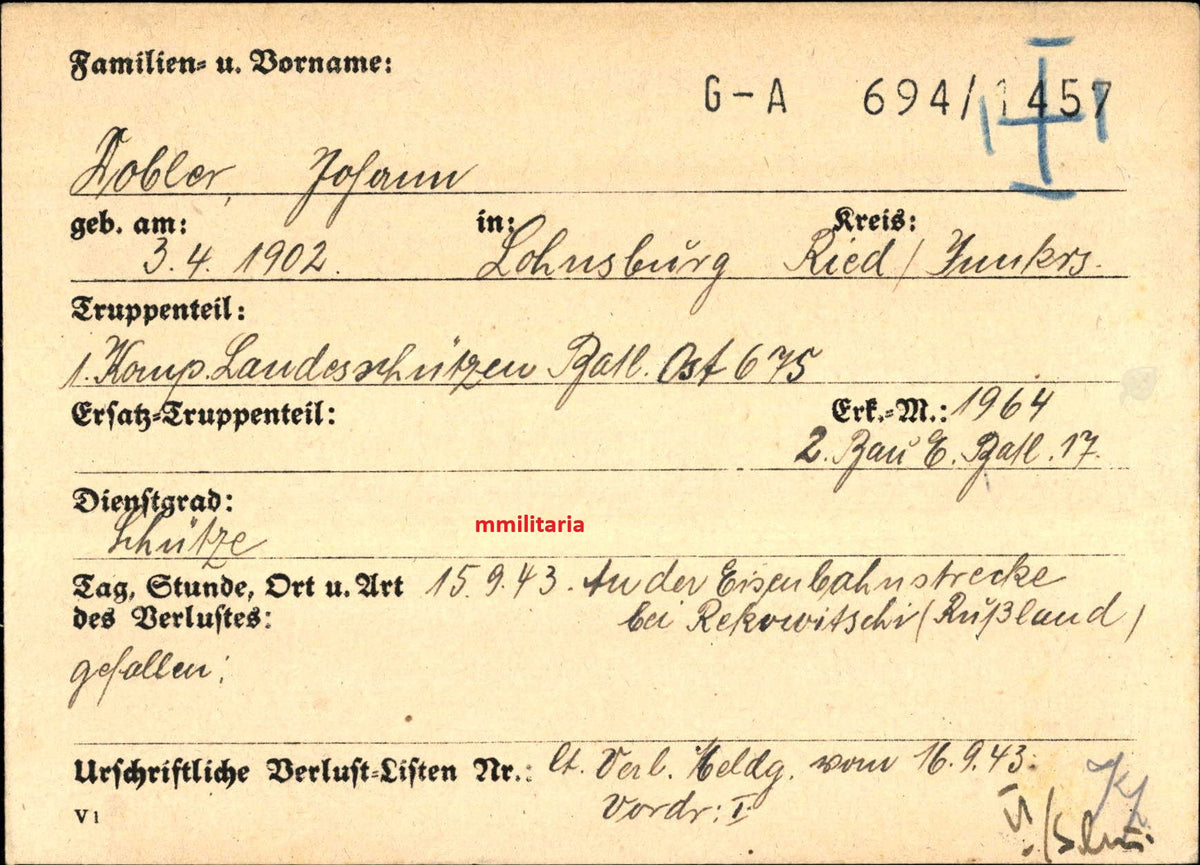 Familien- u. Vorname:
G-A 694/1457
Dobler, Johann
geb. am: in: Kreis:
3.4. 1902. Lohnsburg Ried / Innkrs.
Truppenteil:
1. Komp. Landesschützen Batl. Ost 675
Ersatz-Truppenteil: Erk.-M.: 1964
2. Bau E. Batl. 17.
Dienstgrad:
Schütze
mmilitaria
Tag, Stunde, Ort u. Art 15.9.43. An der Eisenbahnstrecke
des Verlustes: bei Rekowitschi (Rußland)
gefallen;
Urschriftliche Verlust-Listen Nr.: lt. Verl. Meldg. vom 16.9.43.
Vordr: I.
V1